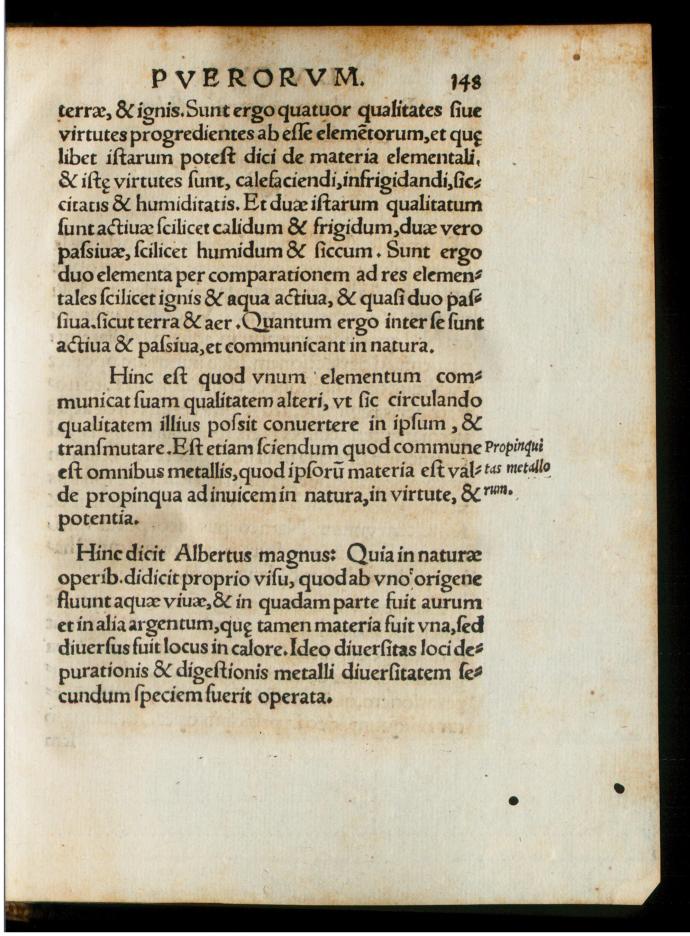 PVERORVM. 148
terræ, & ignis. Sunt ergo quatuor qualitates ſiue
virtutes progredientes ab eſſe elemẽtorum, et quę
libet iſtarum poteſt dici de materia elementali,
& iſtę virtutes ſunt, calefaciendi, infrigidandi, ſic⸗
citatis & humiditatis. Et duæ iſtarum qualitatum
ſunt actiuæ ſcilicet calidum & frigidum, duæ vero
paſsiuæ, ſcilicet humidum & ſiccum. Sunt ergo
duo elementa per comparationem ad res elemen⸗
tales ſcilicet ignis & aqua actiua, & quaſi duo paſ⸗
ſiua. ſicut terra & aer. Quantum ergo inter ſe ſunt
actiua & paſsiua, et communicant in natura.
Hinc eſt quod vnum elementum com⸗
municat ſuam qualitatem alteri, vt ſic circulando
qualitatem illius poſsit conuertere in ipſum, &
tranſmutare. Eſt etiam ſciendum quod commune
eſt omnibus metallis, quod ipſorũ materia eſt val⸗
de propinqua adinuicem in natura, in virtute, &
potentia.
Propinqui
tas metallo
rum.
Hinc dicit Albertus magnus: Quia in naturæ
operib. didicit proprio viſu, quod ab vno origene
fluunt aquæ viuæ, & in quadam parte fuit aurum
et in alia argentum, quę tamen materia fuit vna, ſed
diuerſus fuit locus in calore. Ideo diuerſitas loci de⸗
purationis & digeſtionis metalli diuerſitatem ſe⸗
cundum ſpeciem fuerit operata.